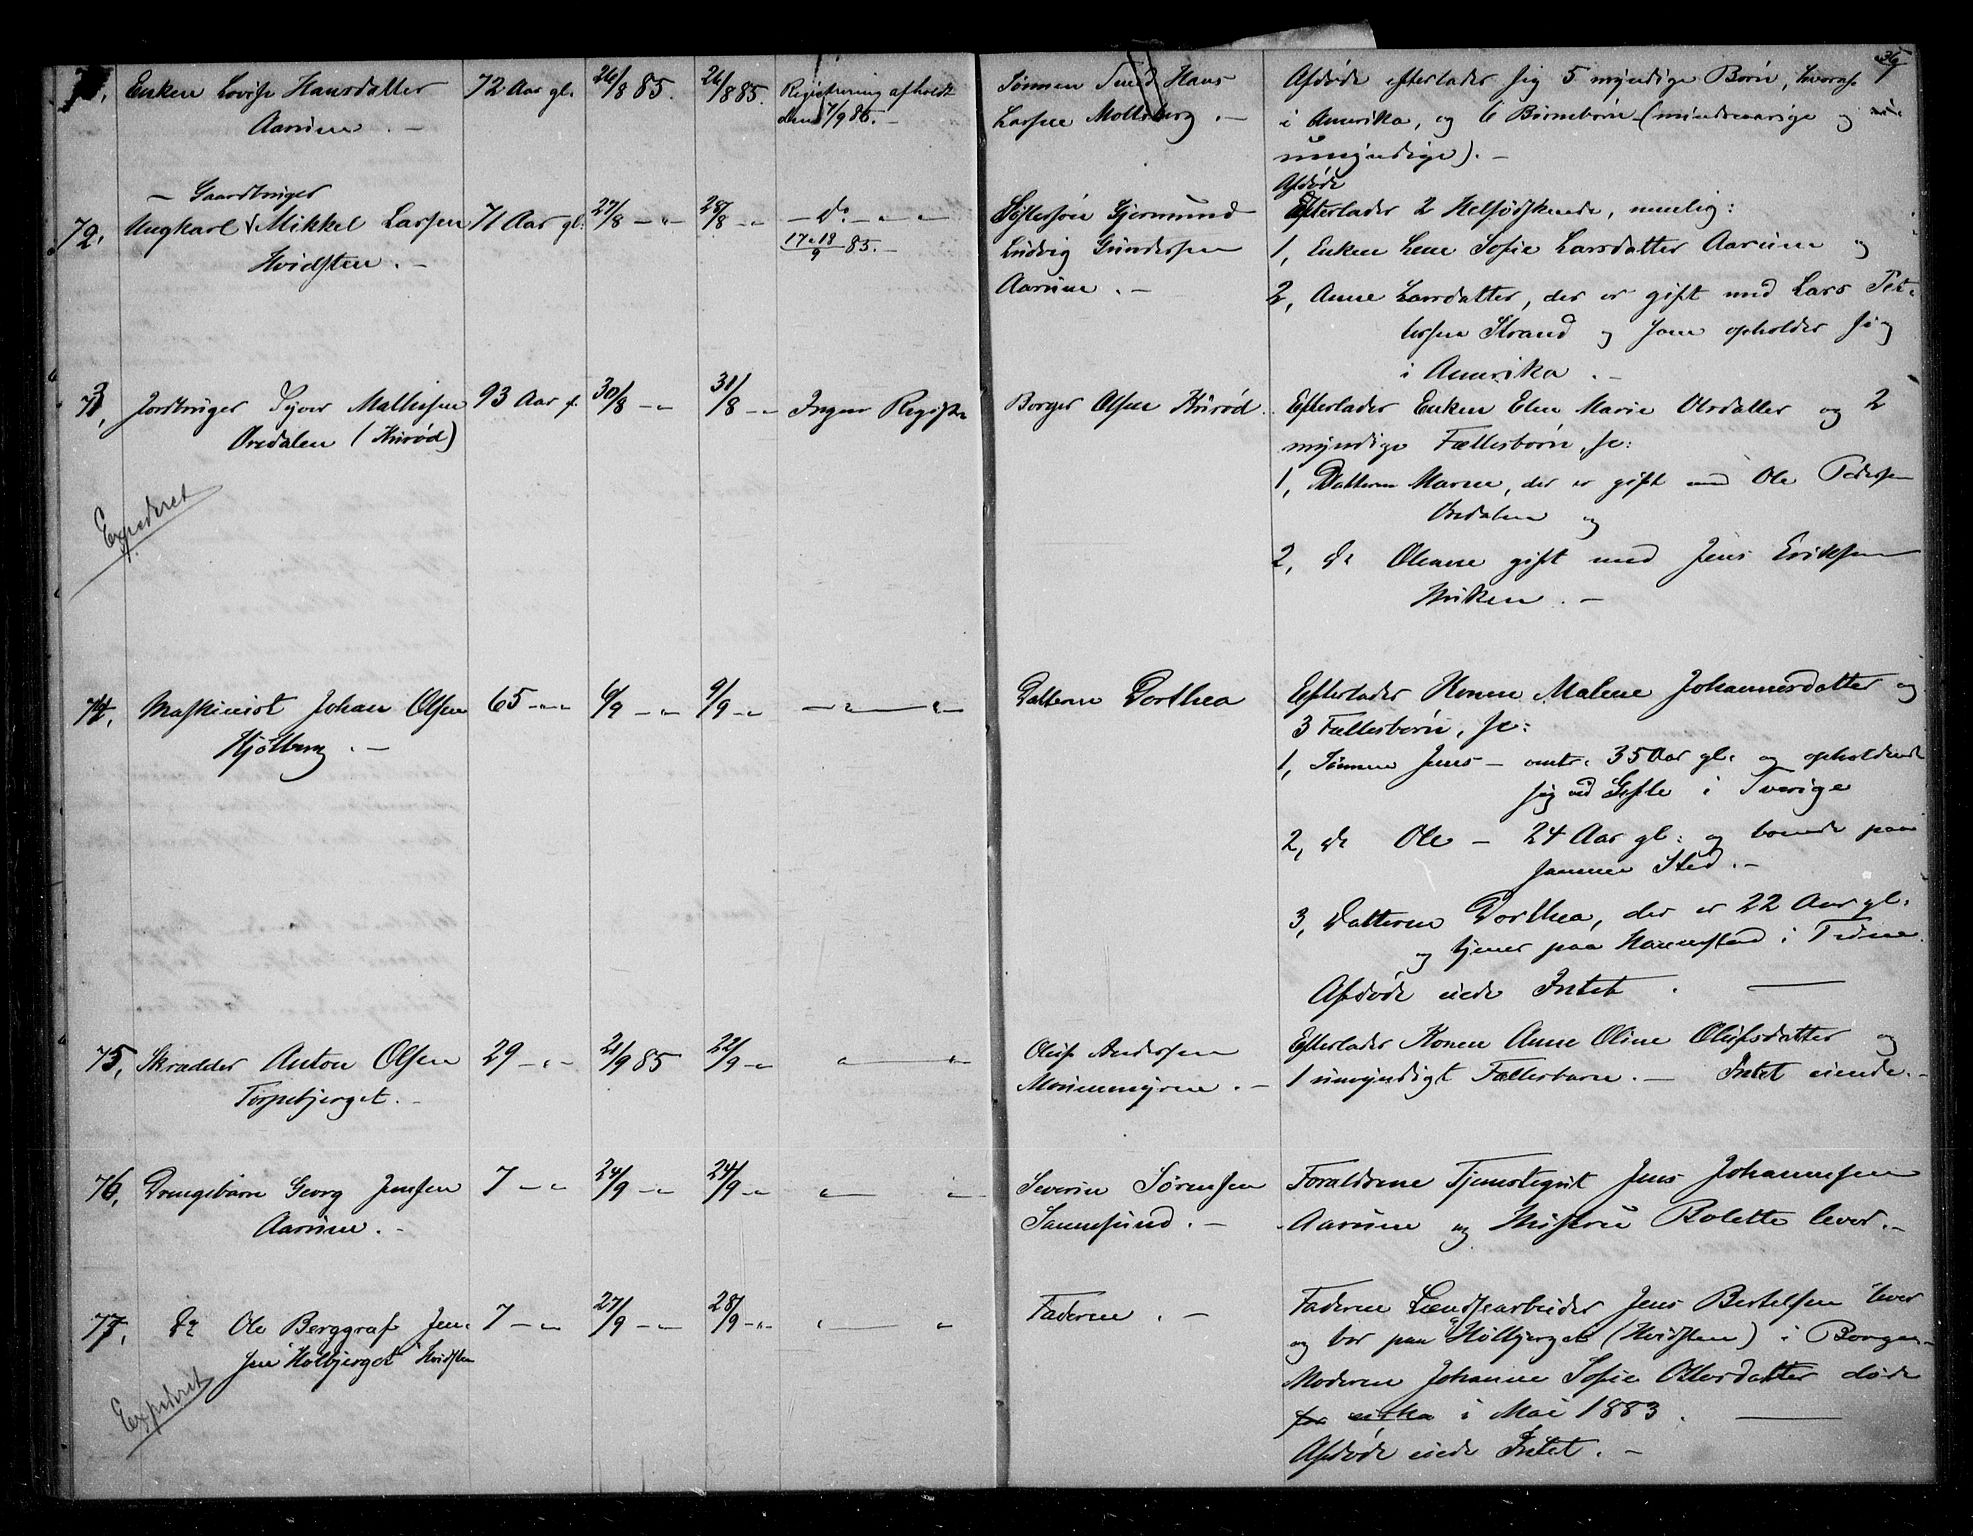 71, Enken Lovise Hansdatter 72 Aar gl. 26/8 85. 26/8 85. Registrering afholdt Sønnen Smed Hans Afdøde efterlader sig 5 myndige Børn, hvoraf
Aarum. — den 7/9 86. — Larsen — i Amerika, og 6 Børnebørn (mindreaarige og
umyndige). —
— Gaardbruger Afdøde
72, Ungkarl Mikkel Larsen 71 Aar gl. 27/8 — " 28/8 — " — do — " — " Søstersøn Gjermund Efterlader 2 Helsødskende, nemlig:
Hvidsten. — 17 & 18/9 85. — Ludvig Gundersen 1, Enken Lene Sofie Larsdatter Aarum og
Aarum. — 2, Anne Larsdatter, der er gift med Lars Pet-
tersen Strand og som opholder sig
i Amerika. —
73, Jordbruger Syver Mathisen 93 Aar g. 30/8 — " 31/8 — " Ingen Registr. Borger Olsen Kurød. Efterlader Enken Elen Marie Olsdatter og 2
Ordalen (Kurød) myndige Fællesbørn, se:
1, Datteren Maren, der er gift med Ole Pedersen
Expederet Ordalen og
2, do Oleane gift med Jens Eriksen
Huken. —
74, Maskinist Johan Olsen 65 — " — 6/9 — " 9/9 — " — " — " — Datteren Dorthea Efterlader Konen Malene Johannesdatter og
Kjølberg. — 3 Fællesbørn, se:
1, Sønnen Jens — omtr. 35 Aar gl. og opholdende
sig ved Gefle i Sverige
2, do Ole — 24 Aar gl. og boende paa
samme Sted. —
3, Datteren Dorthea, der er 22 Aar gl.
og tjener paa Hannestad i Tune.
Afdøde eiede Intet. —
75, Skrædder Anton Olsen 29 — " — 21/9 85 22/9 — " " — " Oluf Andersen Efterlader Konen Anne Oline Olufsdatter og
Torpebjerget. — — 1 umyndigt Fællesbarn. — Intet eiende. —
76, Drengebarn Georg Jensen 7 — " 24/9 — " 24/9 — " " — " Severin Sørensen Forældrene Tjenestegut Jens Johannesen
Aarum. — Sannesund. — Aarum og Hustru Bolette lever. —
77, do Ole Berggraf Jen- 7 — " 27/9 — " 28/9 — " " — " Faderen. — Faderen Jens Bertelsen lever
sen "Hølbjerget" Hvidsten og bor paa Hølbjerget (Hvidsten) i Borge. —
Expederet Moderen Johanne Sofie Ottersdatter døde
for cirka i Mai 1883. —
Afdøde eiede Intet. —